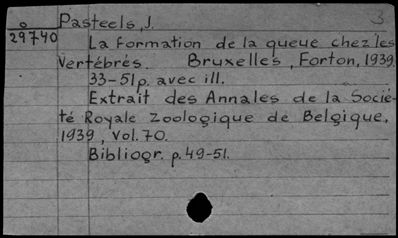 o Pasteels, J. 3
29740 La formation de la queue chez les
Vertébrés. Bruxelles, Forton, 1939.
33-51p. avec ill.
Extrait des Annales de la Socié-
té Royale Zoologique de Belgique,
1939, Vol. 70.
Bibliogr. p. 49-51.